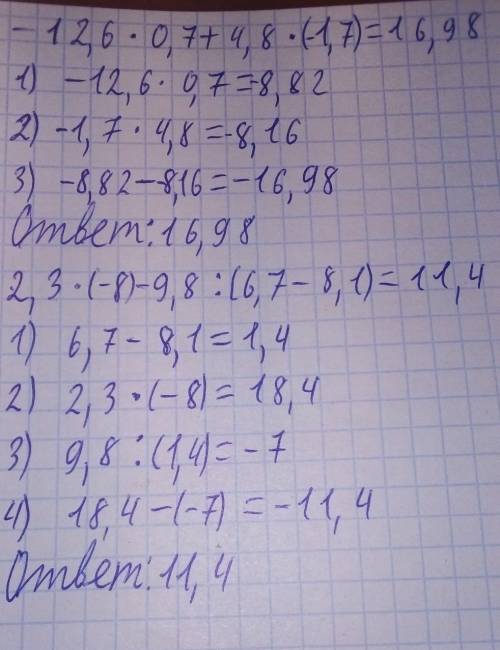 -12,6·0,7+4,8·(-1,7)=16,98
1) -12,6·0,7=-8,82
2) -1,7·4,8=-8,16
3) -8,82-8,16=-16,98
Ответ: 16,98
2,3·(-8)-9,8:(6,7-8,1)=11,4
1) 6,7-8,1=1,4
2) 2,3·(-8)=18,4
3) 9,8:(1,4)=-7
4) 18,4-(-7)=-11,4
Ответ: 11,4